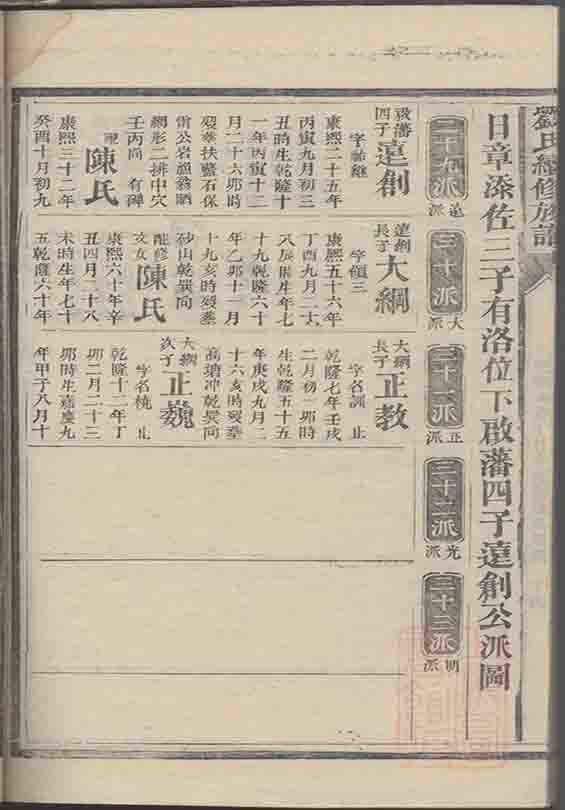 劉氏續修族譜
日章添佐三子有洛位下啟藩四子遠創公派圖
二十九派
遠派
三十派
大派
三十一派
正派
三十二派
光派
三十三派
明派
啟藩四子遠創
字
康熙二十五年
丙寅九月初三
丑時生乾隆十
一年丙寅十二
月二十六卯時
歿葬扶鹽石保
雷公岩漁翁晒
網形二排中穴
壬丙向 有碑
配陳氏
康熙三十二年
癸酉十月初九
遠創長子大綱
字領三
康熙五十六年
丁酉九月二十六
八辰時生年七
十九乾隆六十
年乙卯十一月
十九亥時歿葬
砂山乾巽向
配修文女陳氏
康熙六十年辛
丑四月二十八
未時生年七十
五乾隆六十年
大綱長子正教
字名訓 止
乾隆七年壬戌
二月初二卯時
生乾隆五十五
年庚戌九月二
十六亥時歿葬
高塘冲乾巽向
大綱次子正巍
字名 止
乾隆十二年丁
卯二月二十三
卯時生嘉慶九
年甲子八月十